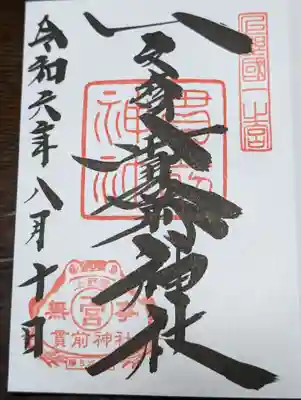 上野國一之宮
一之宮貫前神社
貫前
神社
令和六年八月十日
無
宮
貫前神社